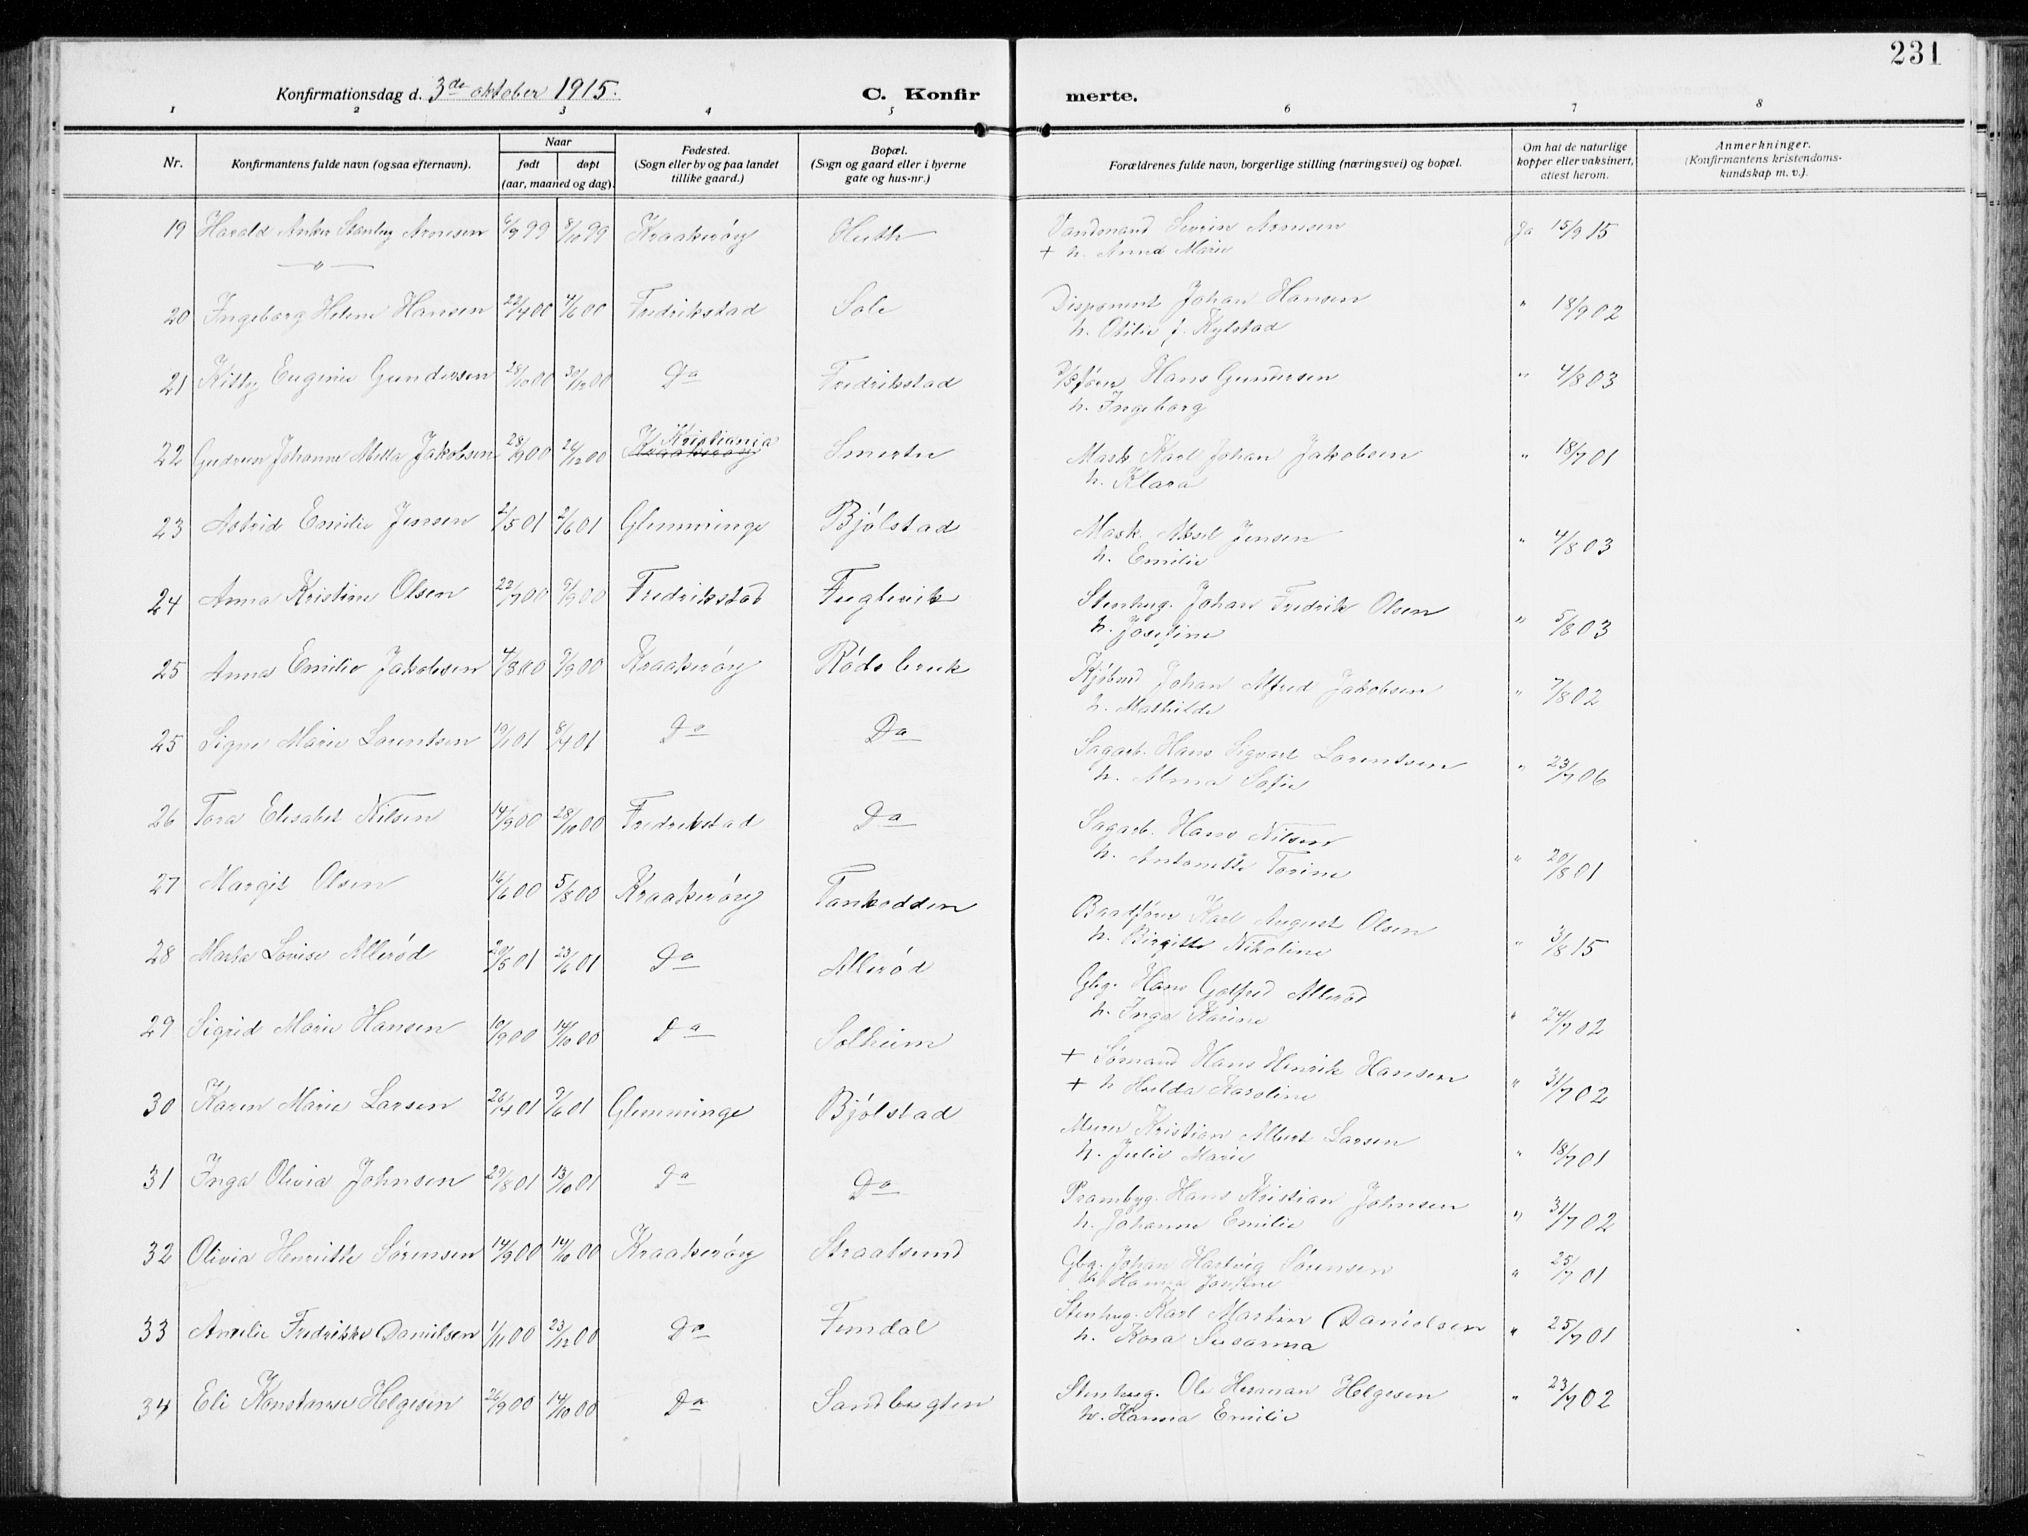 231
Konfirmationsdag d. 3de oktober 1915.
C. Konfirmerte.
1 2 3 4 5 6 7 8
Nr.
Konfirmantens fulde navn (ogsaa efternavn).
Naar
født
døpt
(aar, maaned og dag).
Fødested.
(Sogn eller by og paa landet
tillike gaard.)
Bopæl.
(Sogn og gaard eller i byerne
gate og hus-nr.)
Forældrenes fulde navn, borgerlige stilling (næringsvei) og bopæl.
Om hat de naturlige
kopper eller vaksinert,
attest herom.
Anmerkninger.
(Konfirmantens kristendoms-
kundskap m. v.).
19 Harald Anker Stanley Arnesen 6/9 99 8/10 99 Kraakerøy Huth Vandmand Severin Arnesen Ja 15/9 15
+ h. Anna Marie
— " —
20 Ingeborg Helene Hansen 22/4 00 4/6 00 Fredrikstad Sole Disponent Johan Hansen " 18/9 02
h. Otilie f. Kylstad
21 Kitty Eugenie Gundersen 28/10 00 30/12 00 Do Fredrikstad Hans Gundersen " 4/8 03
h. Ingeborg
22 Gudrun Johanne Mella Jakobsen 28/9 00 26/12 00 Kristiania Smertu Mask. Karl Johan Jakobsen " 18/7 01
h. Klara
23 Astrid Emilie Jensen 2/5 01 2/6 01 Glemminge Bjølstad Mask. Aksel Jensen " 4/8 03
h. Emilie
24 Anna Kristine Olsen 22/7 00 9/9 00 Fredrikstad Fuglevik Stenhug. Johan Fredrik Olsen " 5/8 03
h. Josefine
25 Anna Emilie Jakobsen 4/8 00 9/9 00 Kraakerøy Røds bruk Kjøbmd Johan Alfred Jakobsen " 7/8 02
h. Mathilde
25 Signe Marie Lorentsen 19/1 01 8/4 01 Do Do Sagarb. Hans Sigvart Lorentsen " 23/7 06
h. Alma Sofie
26 Tora Elisabet Nilsen 14/9 00 28/10 00 Fredrikstad Do Sagarb. Hans Nilsen " 20/8 01
h. Antonette Torine
27 Margit Olsen 16/6 00 5/8 00 Kraakerøy Tankodden Baadfører Karl August Olsen " 3/8 15
h. Birgitte Nikoline
28 Marta Lovise Allerød 20/5 01 23/6 01 Do Allerød Gbg. Hans Gotfred Allerød " 24/7 02
h. Inga Karine
29 Sigrid Marie Hansen 10/9 00 14/10 00 Do Solheim + Sømand Hans Henrik Hansen " 31/7 02
+ h Hulda Karoline
30 Karen Marie Larsen 26/4 01 9/6 01 Glemminge Bjølstad Murer Kristian Albert Larsen " 18/7 01
h. Julie Marie
31 Inga Olivia Johnsen 29/8 01 13/10 01 Do Do Prambyg. Hans Kristian Johnsen " 31/7 02
h. Johanne Emilie
32 Olivia Henriette Sørensen 14/9 00 14/10 00 Kraakerøy Straalsund Gbg. Johan Hartvig Sørensen " 25/7 01
h. Hanna Josefine
33 Amelie Fredrikke Danielsen 1/11 00 23/12 00 Do Femdal Stenhug. Karl Martin Danielsen " 25/7 01
h. Kora Susanna
34 Eli Konstanse Helgesen 26/9 00 14/10 00 Do Sandbugten Stenhug. Ole Herman Helgesen " 23/7 02
h. Hanna Emilie